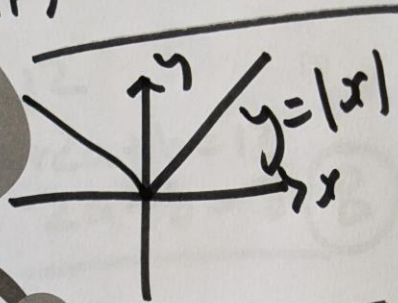 y
y=|x|
x